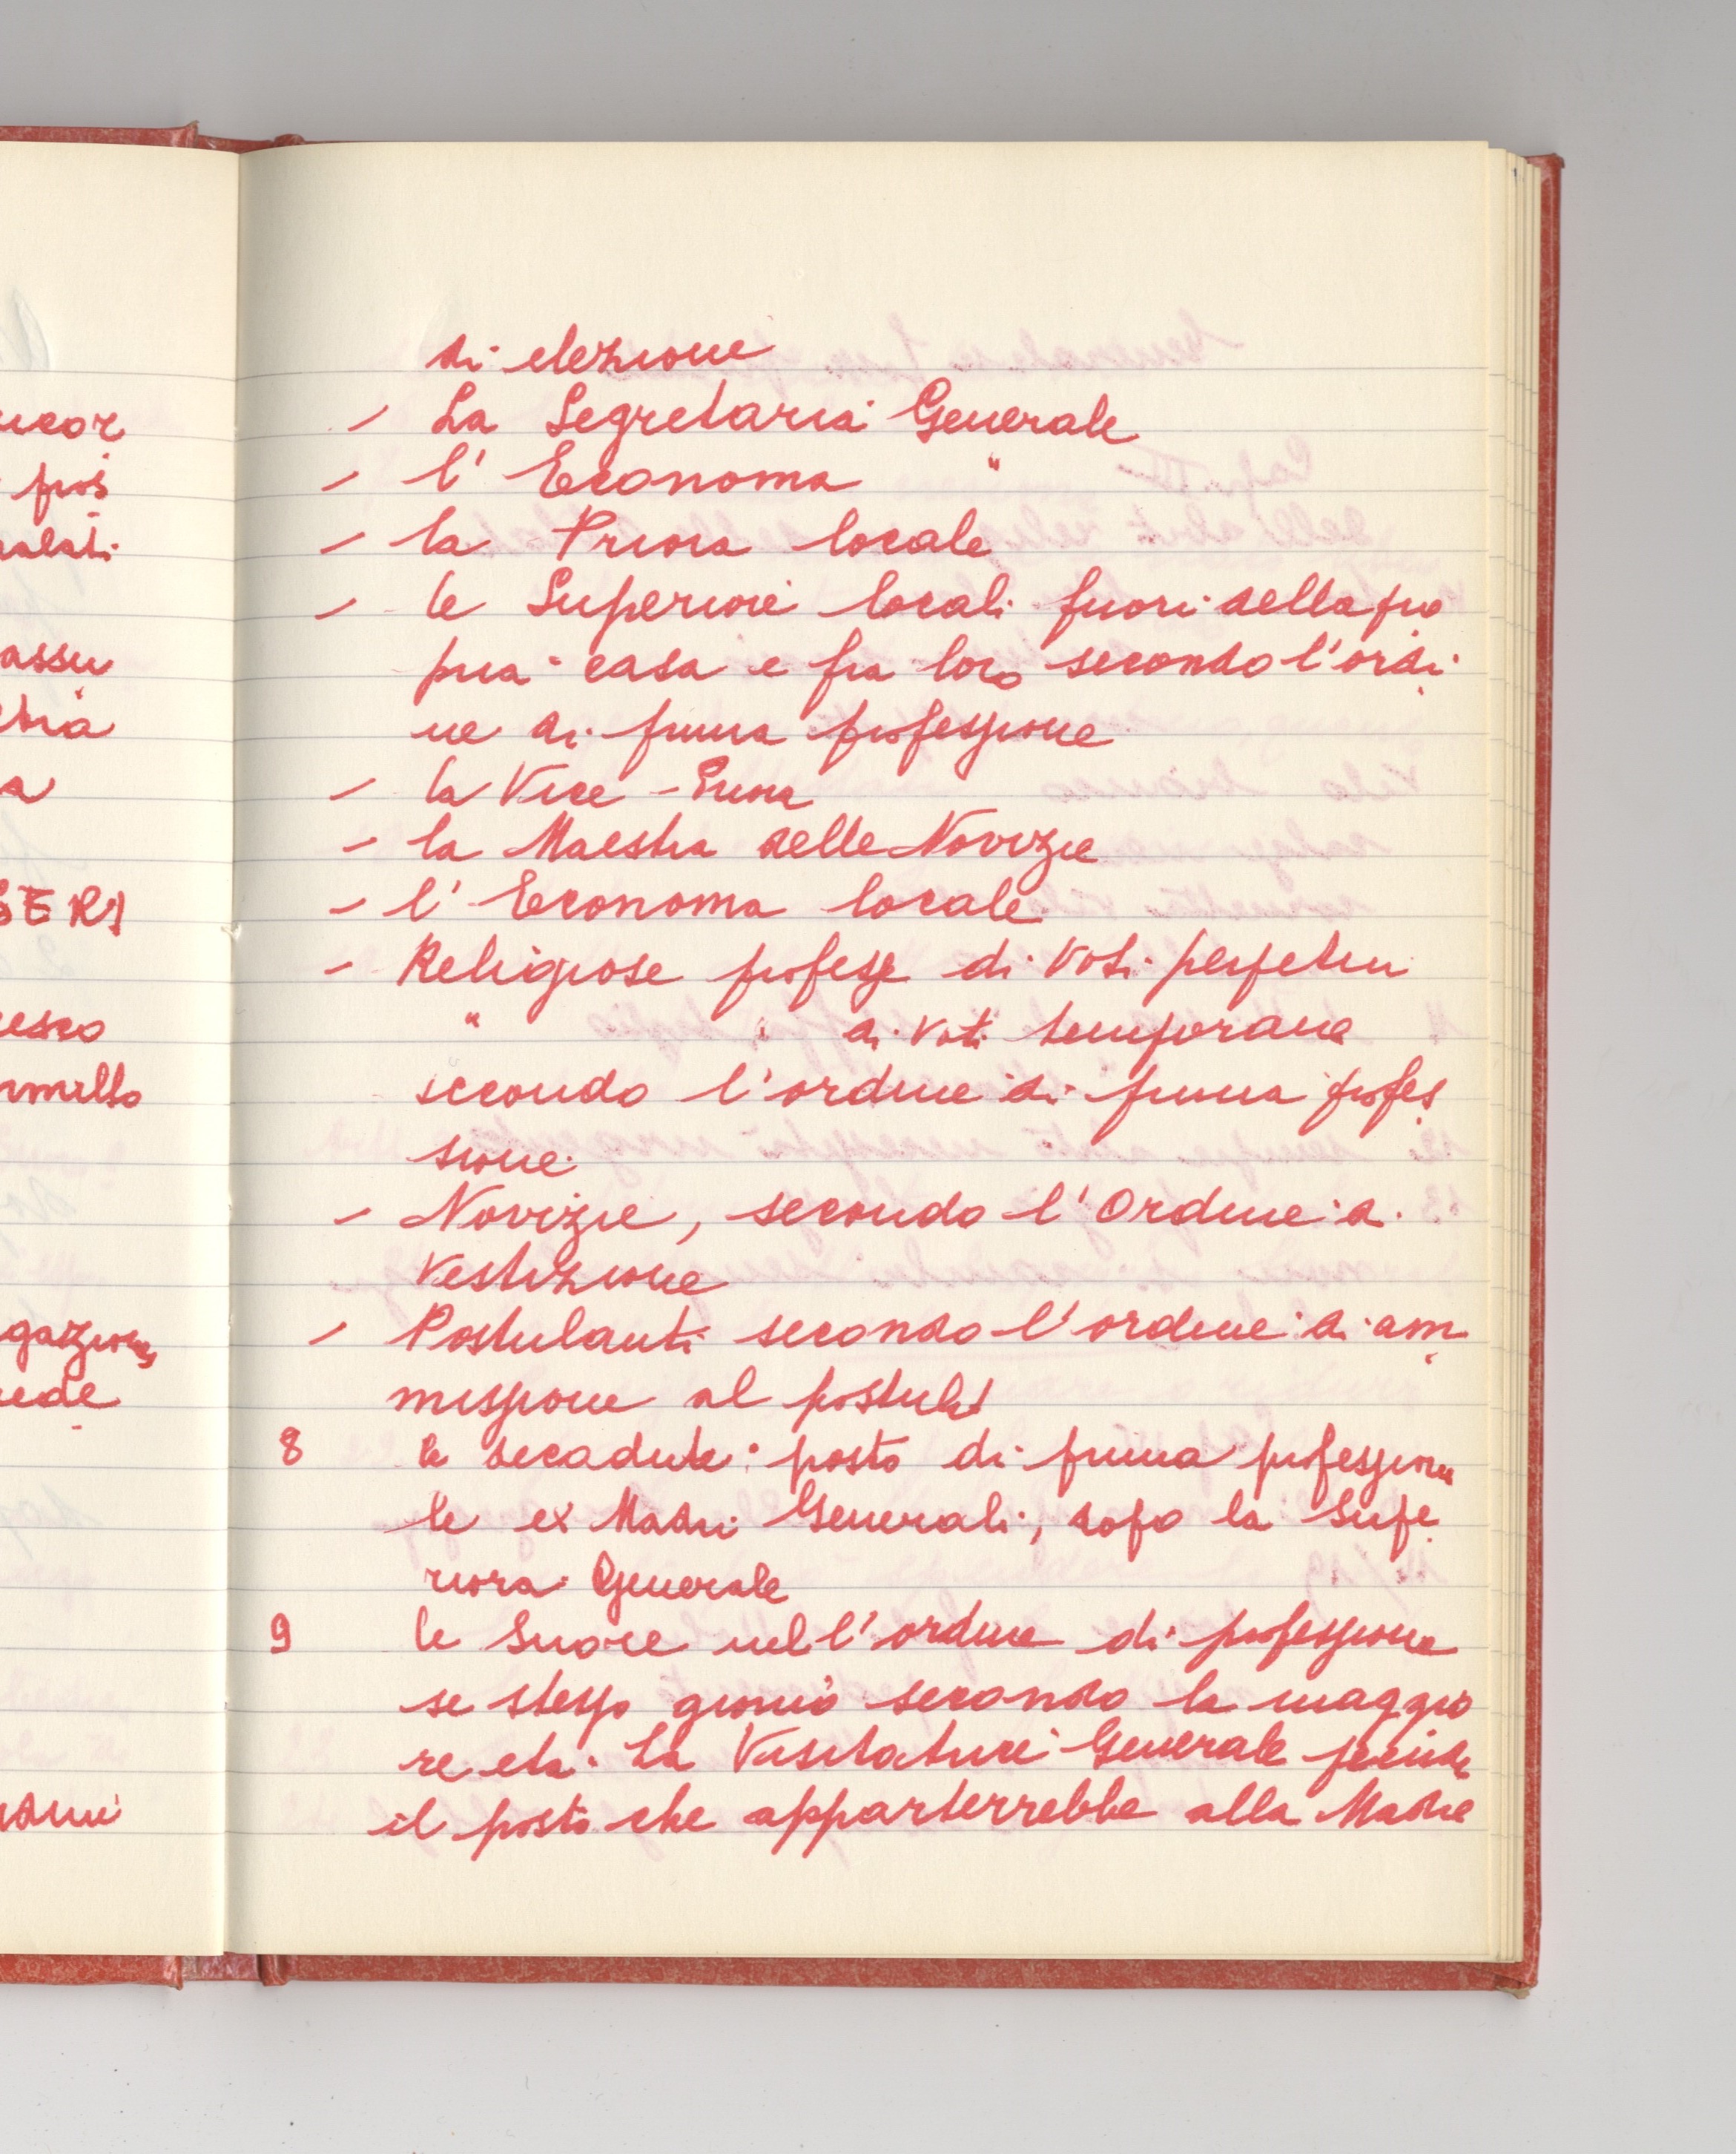 di elezione
- La Segretaria Generale
- l' Economa "
- la Priora locale
- le Superiore locali fuori della pro
pria casa e fra loro secondo l'ordi
ne di prima professione
- la Vice - Priora
- la Maestra delle Novizie
- l' Economa locale
- Religiose professe di Voti perpetui
" " di voti temporanei
secondo l'ordine di prima profes
sione
- Novizie, secondo l'Ordine di
Vestizione
- Postulanti secondo l'ordine di am
missione al postulato
8 le decadute: posto di prima professione
le ex Madri Generali, dopo la Supe
riora Generale
9 le Suore nell'ordine di professione
se stesso giorno secondo la maggio
re età. La Visitatrice Generale prende
il posto che apparterrebbe alla Madre